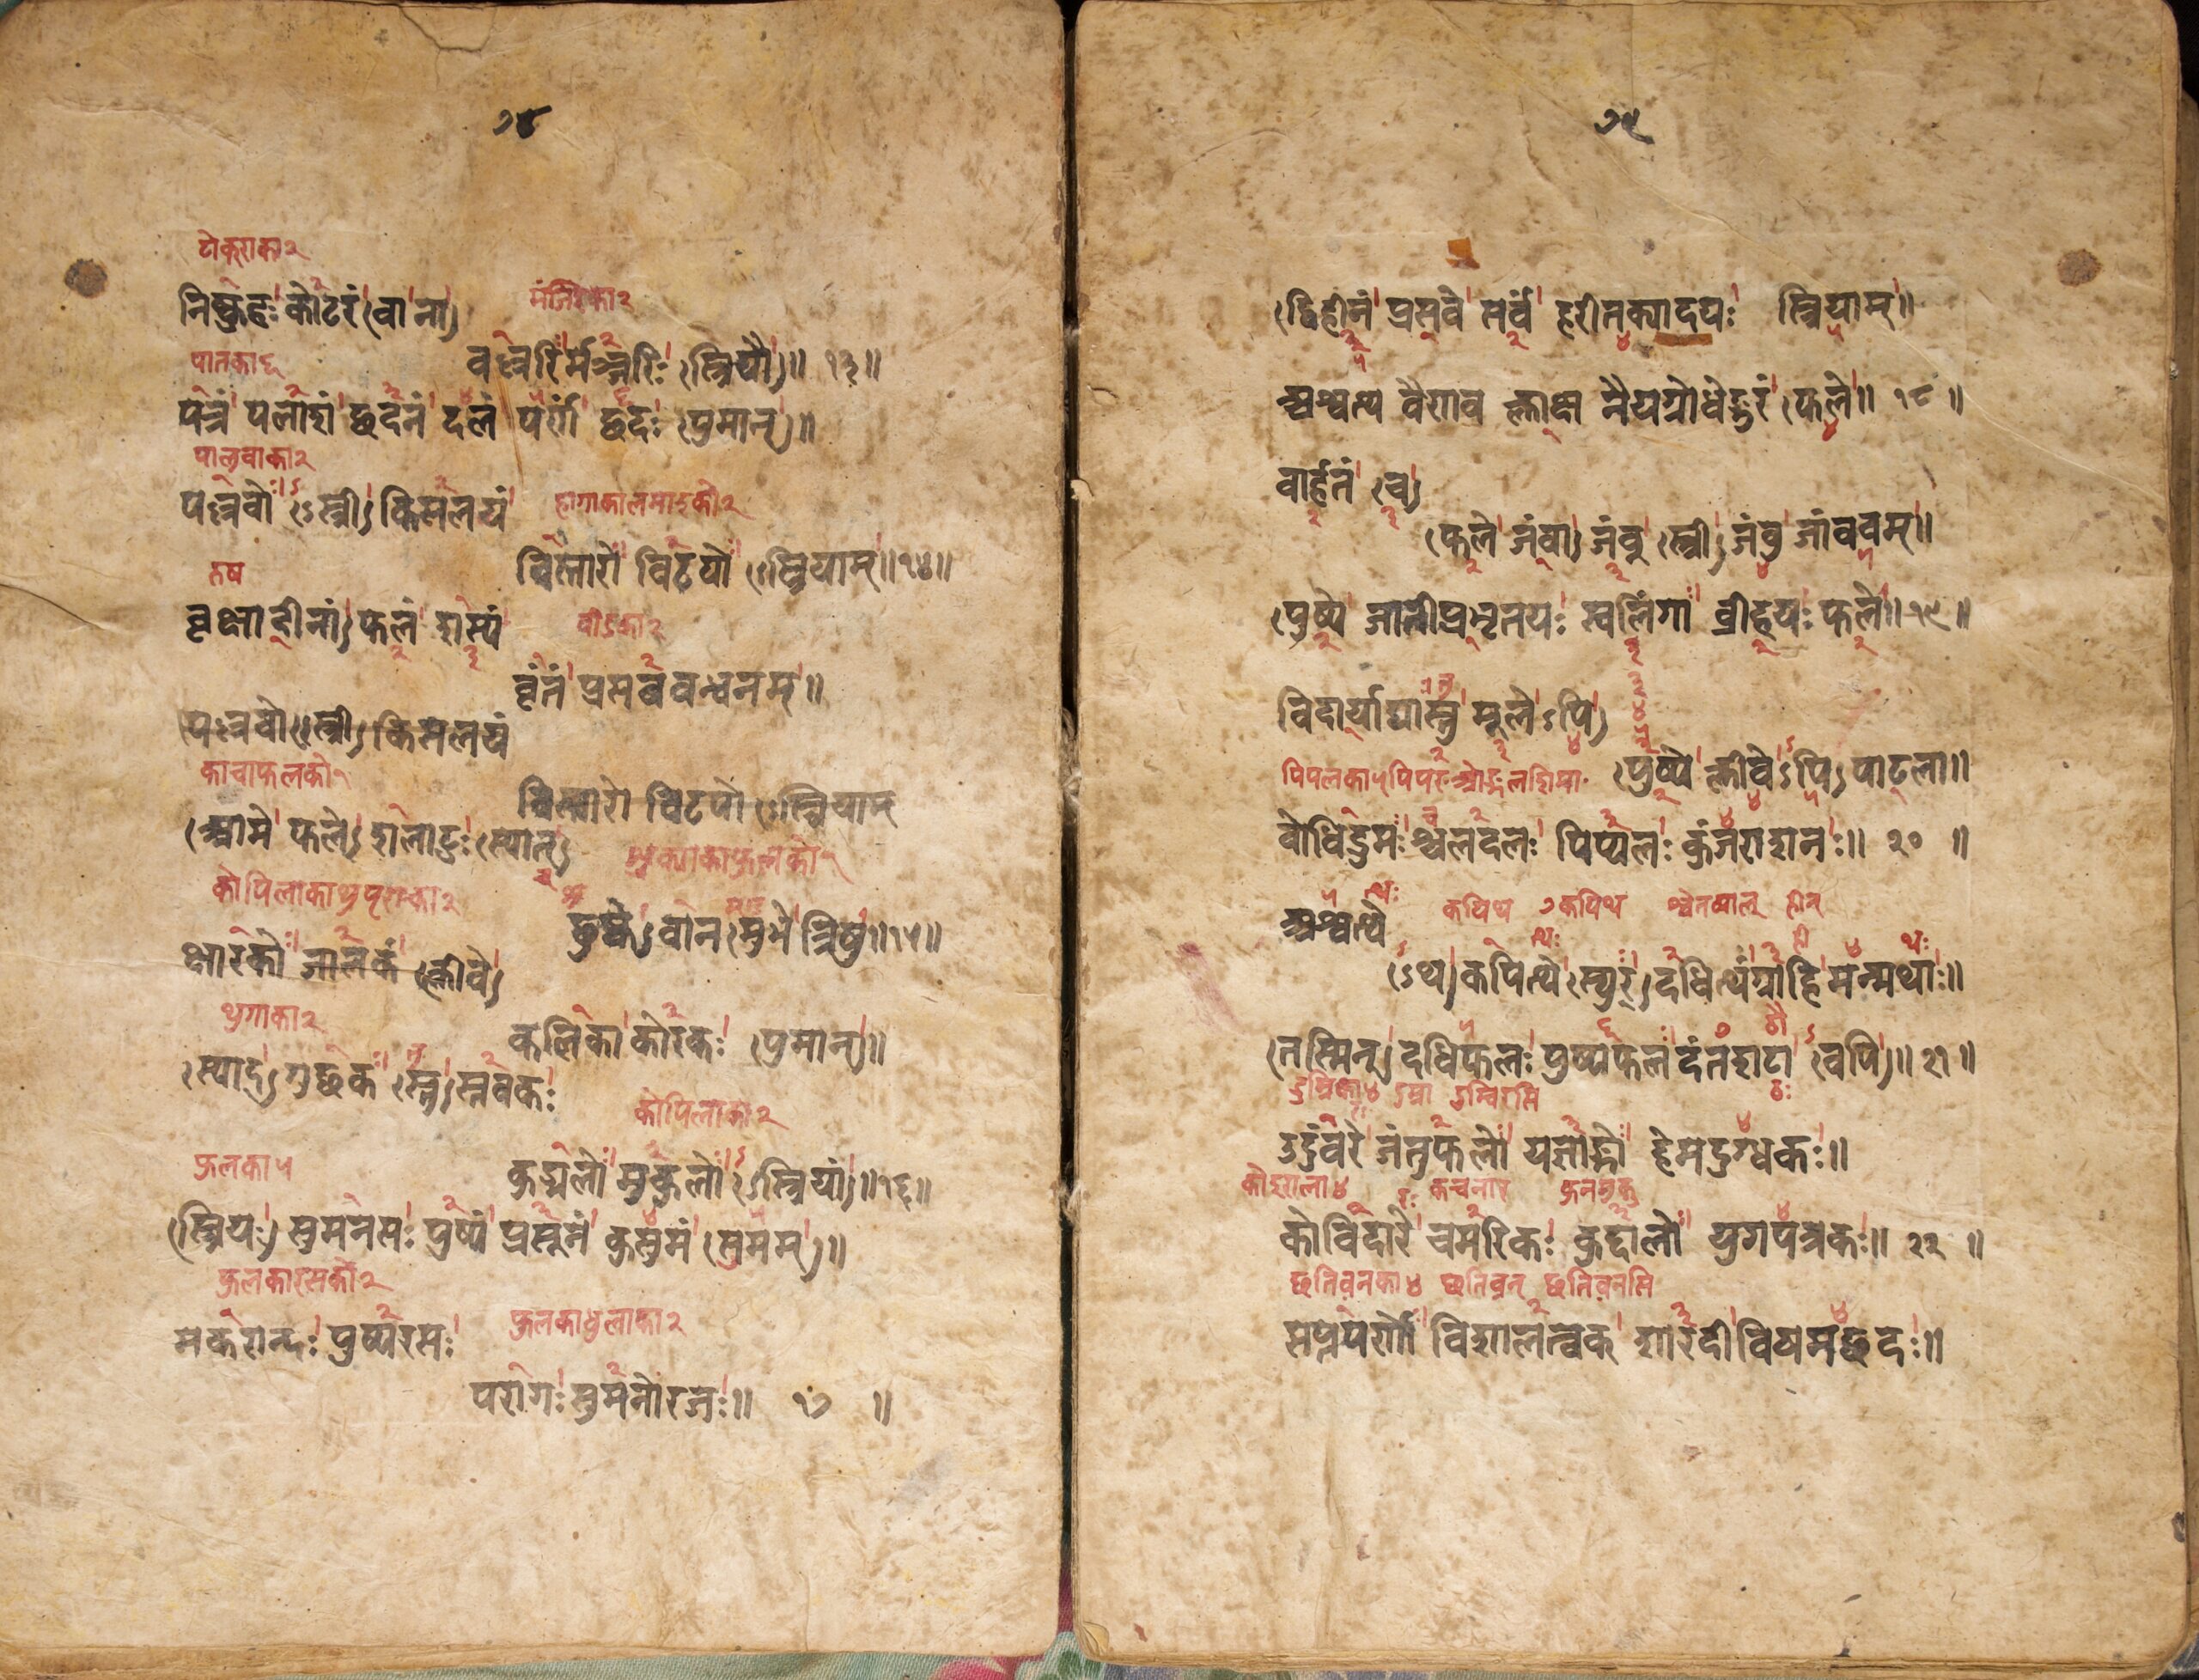 ७४
टोकुराका२
निष्कुहः कोटरं वा ना
मंजरिका२
वल्लरिर्मञ्जरिः स्त्रियौ॥ १३॥
पातका६
पत्रं पलाशं छदनं दलं पर्णं छदः पुमान्॥
पालुवाका२
पल्लवो ऽस्त्री किसलयं
हागाकालमाङ्को२
विस्तारो विटपो ऽस्त्रियाम्॥१४॥
वृक्षादीनां फलं शस्यं
वृंतं प्रसवबन्धनम्॥
पल्लवो ऽस्त्री किसलयं
काचाफलको१
विस्तारो विटपो ऽस्त्रियाम्
आमे फले शलाटुः स्यात्
शुष्के वानमुभे त्रिषु॥१५॥
क्षारको जालकं क्लीवे
थुगाका२
कलिका कोरकः पुमान्॥
स्याद् गुछक स्तु स्तवकः
कोपिलाका२
कुड्मलो मुकुलो ऽस्त्रियां॥१६॥
फुलका५
स्त्रियः सुमनसः पुष्पं प्रसूनं कुसुमं सुमम्॥
फुलकारसको२
मकरान्दः पुष्परसः
फुलकाधुलाका२
परागः सुमनोरजः॥ १७ ॥
७५
द्विहीनं प्रसवे सर्वं हरीतक्यादयः स्त्रियाम्॥
अश्वत्थ वैणव प्लाक्ष नैयग्रोधैङ्गुदं फले॥ १८ ॥
वार्हतं च
फले जंवा जंवु स्त्री जंवु जांववम्॥
पुष्पे जातीप्रभृतयः स्वलिंगा व्रीहयः फले॥१९॥
विदार्याद्यास्तु मूलेऽपि
पुष्पे क्लीवेऽपि पाटला॥
वोधिद्रुमः श्चलदलः पिप्पलः कुंजराशनः॥ २० ॥
अश्वत्थे
कपिथ कपिथ
ऽथ कपित्थे स्युर् दधित्थंग्राहि मन्मथाः॥
तस्मिन् दधिफलः पुष्पफल दंतशटा वपि॥ २१ ॥
उदुंवरे जंतुफलो यज्ञाङ्गो हेमदुग्धकः॥
कोइराला४ कचनार
कोविदारे चमरिकः कुद्दालो युगपत्रकः॥ २२ ॥
छतिवनका४ छतिवन् छतिवनमि
सप्तपर्णो विशालत्वक् शारदी विषमछदः॥